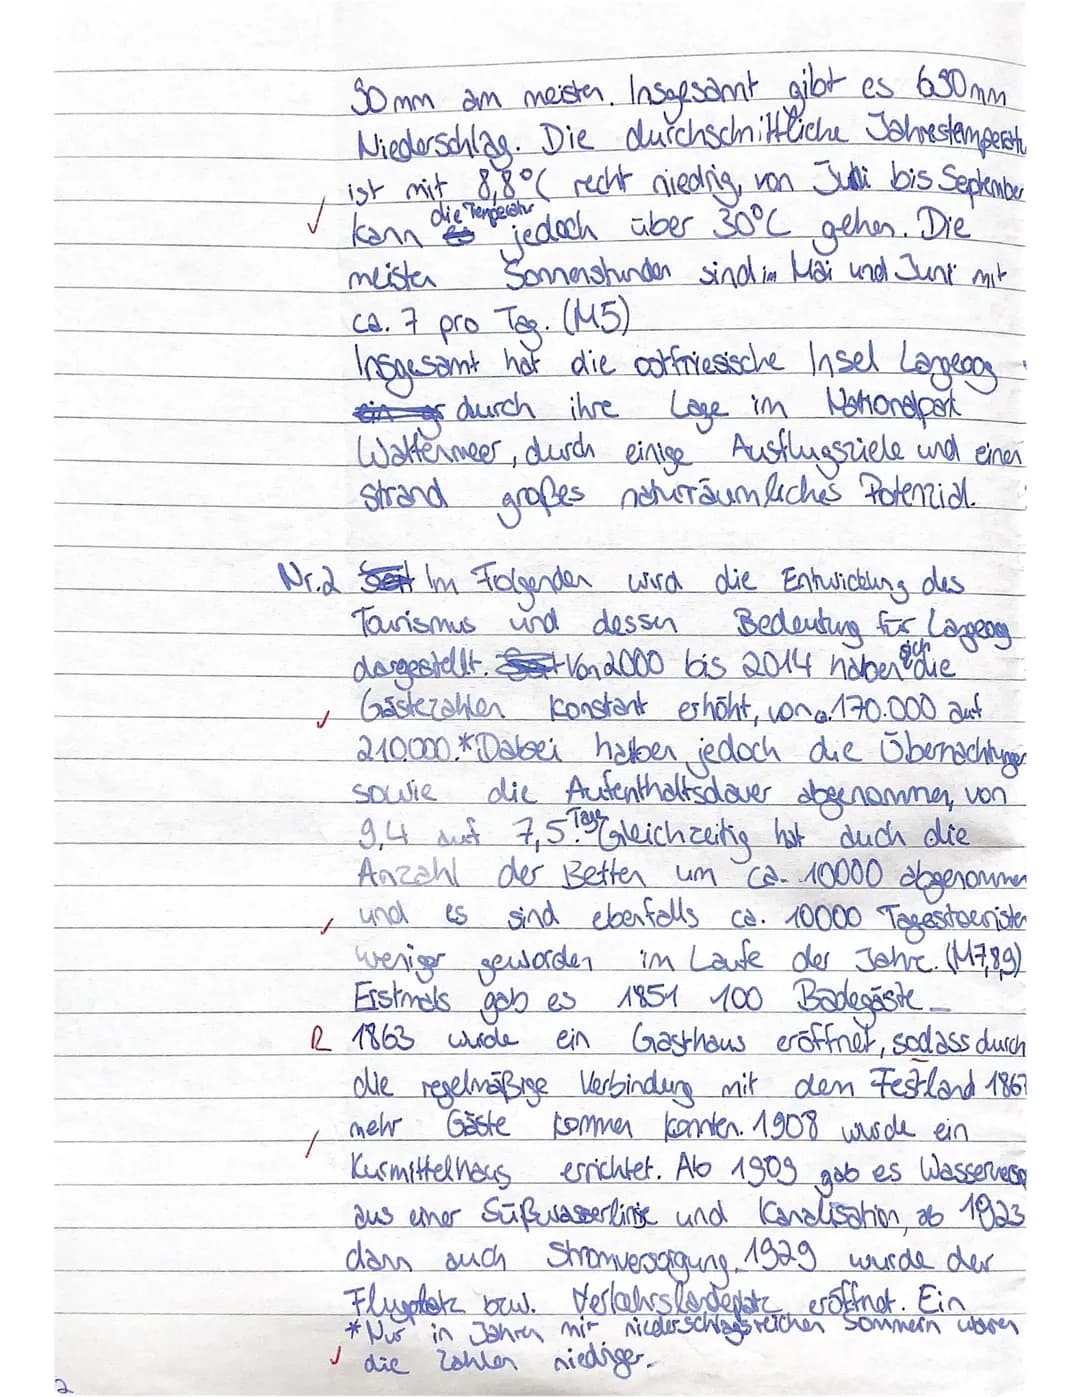 90mm am meisten. Insgesamt gibt es 690mm
Niederschlag. Die durchschnittliche Jahrestemperatu
ist mit 8,8°C recht niedrig, von Juni bis September
kann die Temperatur jedoch über 30°C gehen. Die
meisten Sonnenstunden sind im Mai und Juni mit
ca. 7 pro Tag. (M5)
Insgesamt hat die ostfriesische Insel Langeoog
durch ihre Lage im Nationalpark
Wattenmeer, durch einige Ausflugsziele und einen
Strand großes naturräumliches Potenzial.
Nr.2 Im Folgenden wird die Entwicklung des
Tourismus und dessen Bedeutung für Langeoog
dargestellt. Von 2000 bis 2014 haben sich die
Gästezahlen konstant erhöht, von ca. 170.000 auf
210.000.* Dabei haben jedoch die Übernachtungen
sowie die Aufenthaltsdauer abgenommen, von
9,4 auf 7,5 Tage. Gleichzeitig hat duch die
Anzahl der Betten um ca. 10000 abgenommen
und es sind ebenfalls ca. 10000 Tagestouristen
weniger geworden im Laufe der Jahre. (M7,8,9)
Erstmals gab es 1851 100 Badegäste.
R 1863 wurde ein Gasthaus eröffnet, sodass durch
die regelmäßige Verbindung mit dem Festland 1867
mehr Gäste kommen konnten. 1908 wurde ein
Kurmittelhaus errichtet. Ab 1909 gab es Wasserversg
aus einer Süßwasserlinse und Kanalisation, ab 1923
dann auch Stromversorgung. 1929 wurde der
Flugplatz bzw. Verkehrslandeplatz eröffnet. Ein
* Nur in Jahren mit niederschlagsreichen Sommern waren
die Zahlen niedriger.
2